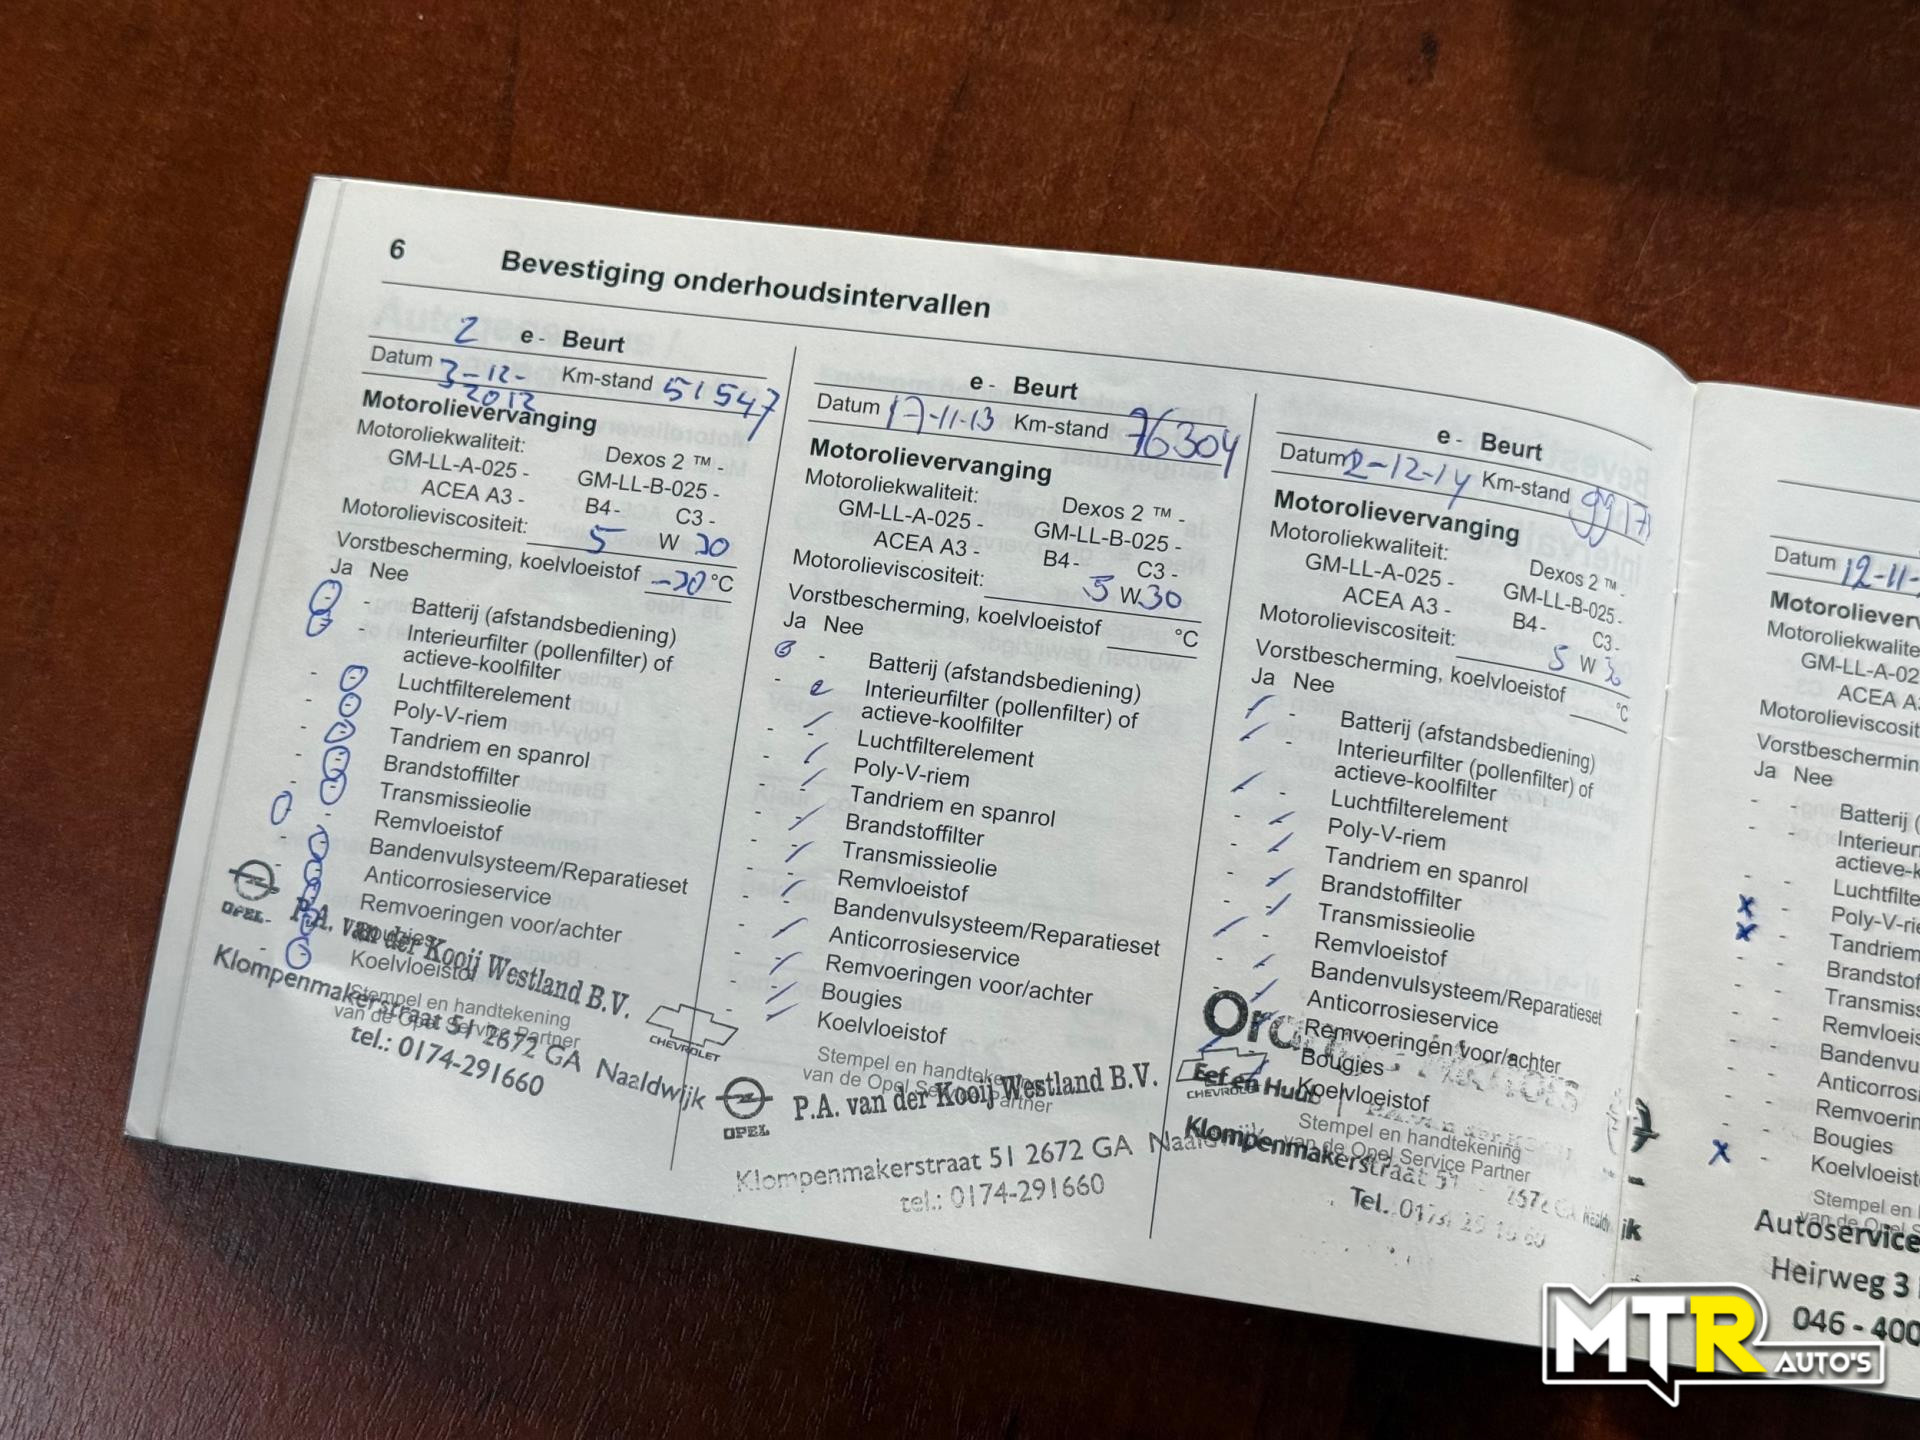 6 Bevestiging onderhoudsintervallen
2 e - Beurt
Datum 3-12-2012 Km-stand 51547
Motorolievervanging
Motoroliekwaliteit:
Dexos 2 ™ -
GM-LL-A-025 - GM-LL-B-025 -
ACEA A3 - B4 - C3 -
Motorolieviscositeit: 5 W 30
Vorstbescherming, koelvloeistof -30 °C
Ja Nee
Batterij (afstandsbediening)
Interieurfilter (pollenfilter) of
actieve-koolfilter
Luchtfilterelement
Poly-V-riem
Tandriem en spanrol
Brandstoffilter
Transmissieolie
Remvloeistof
Bandenvulsysteem/Reparatieset
Anticorrosieservice
Remvoeringen voor/achter
Bougies
Koelvloeistof
Stempel en handtekening
van de Opel Service Partner
OPEL P.A. van der Kooij Westland B.V. CHEVROLET
Klompenmakerstraat 51 2672 GA Naaldwijk
tel.: 0174-291660
e - Beurt
Datum 17-11-13 Km-stand 76304
Motorolievervanging
Motoroliekwaliteit:
Dexos 2 ™ -
GM-LL-A-025 - GM-LL-B-025 -
ACEA A3 - B4 - C3 -
Motorolieviscositeit: 5 W 30
Vorstbescherming, koelvloeistof °C
Ja Nee
Batterij (afstandsbediening)
Interieurfilter (pollenfilter) of
actieve-koolfilter
Luchtfilterelement
Poly-V-riem
Tandriem en spanrol
Brandstoffilter
Transmissieolie
Remvloeistof
Bandenvulsysteem/Reparatieset
Anticorrosieservice
Remvoeringen voor/achter
Bougies
Koelvloeistof
Stempel en handtekening
van de Opel Service Partner
OPEL P.A. van der Kooij Westland B.V. CHEVROLET
Klompenmakerstraat 51 2672 GA Naaldwijk
tel.: 0174-291660
e - Beurt
Datum 2-12-14 Km-stand
Motorolievervanging
Motoroliekwaliteit:
Dexos 2 ™ -
GM-LL-A-025 - GM-LL-B-025 -
ACEA A3 - B4 - C3 -
Motorolieviscositeit: 5 W 30
Vorstbescherming, koelvloeistof °C
Ja Nee
Batterij (afstandsbediening)
Interieurfilter (pollenfilter) of
actieve-koolfilter
Luchtfilterelement
Poly-V-riem
Tandriem en spanrol
Brandstoffilter
Transmissieolie
Remvloeistof
Bandenvulsysteem/Reparatieset
Anticorrosieservice
Remvoeringen voor/achter
Bougies
Koelvloeistof
Stempel en handtekening
van de Opel Service Partner
Eef en Huub
Klompenmakerstraat 51 2672 GA Naaldwijk
Tel.
Datum 12-11-
Motorolieverv
Motoroliekwalite
GM-LL-A-02
ACEA A3
Motorolieviscosit
Vorstbeschermin
Ja Nee
Batterij (
Interieurf
actieve-k
Luchtfilte
Poly-V-rie
Tandriem
Brandstof
Transmiss
Remvloeis
Bandenvu
Anticorros
Remvoerin
Bougies
Koelvloeist
Stempel en
van de Opel S
Autoservice
Heirweg 3
046 - 400
MTR AUTO'S